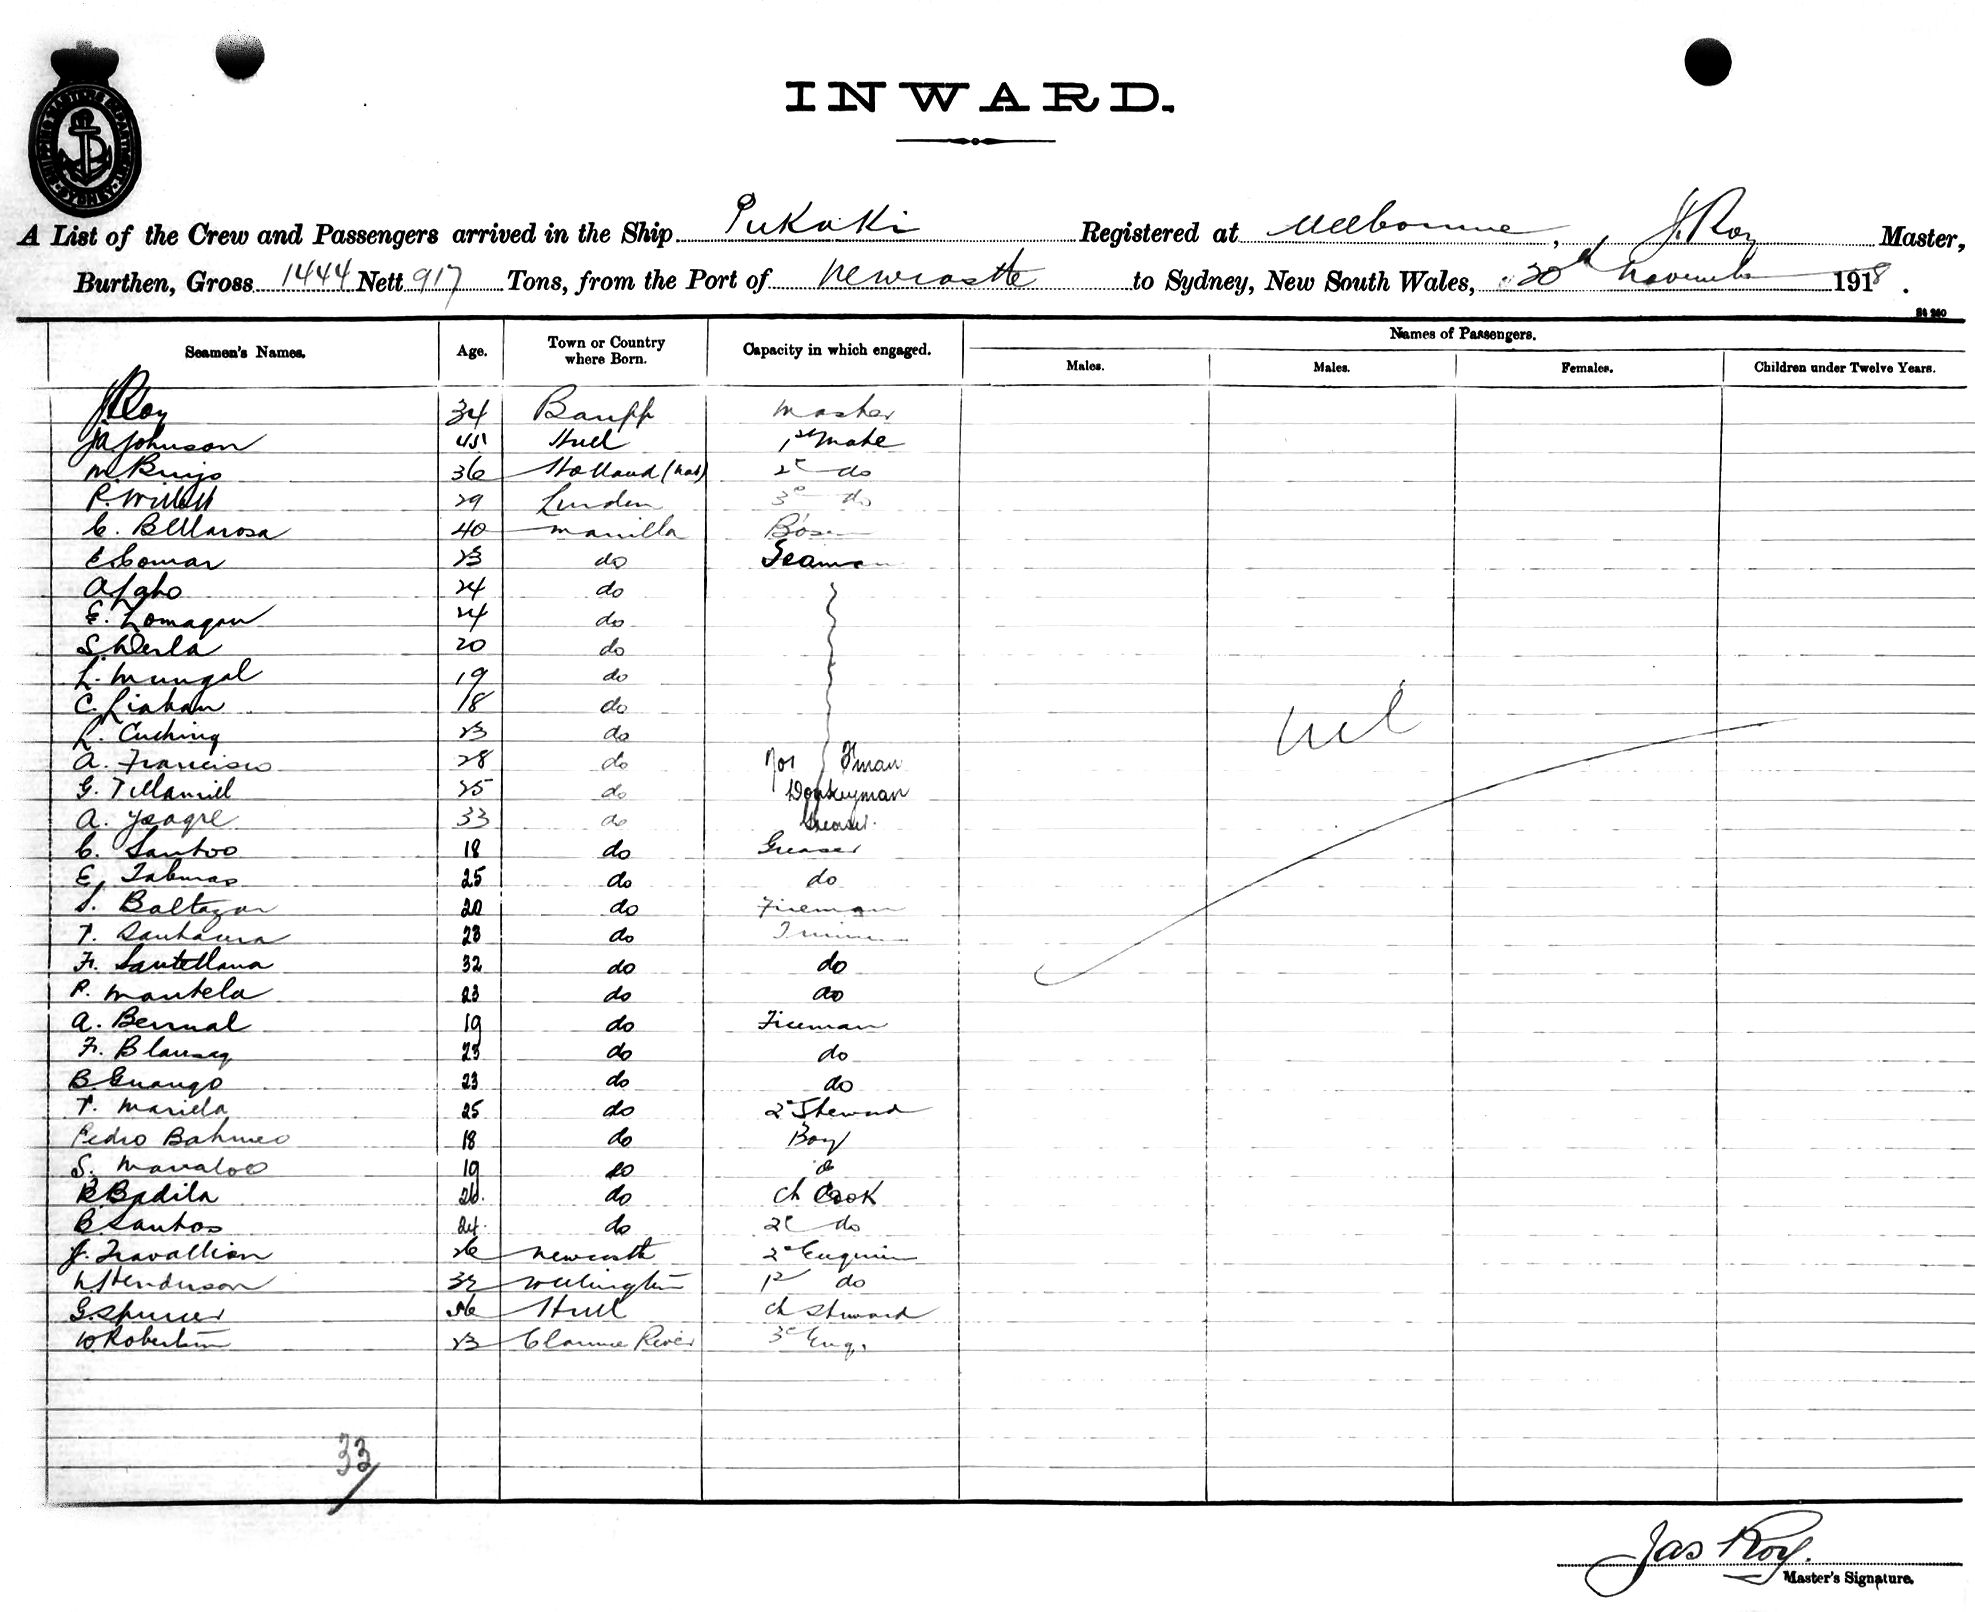 SHIPPING MASTERS DEPARTMENT SYDNEY
INWARD.
A List of the Crew and Passengers arrived in the Ship Pukaki Registered at Melbourne, J. Roy Master,
Burthen, Gross 1444 Nett 917 Tons, from the Port of Newcastle to Sydney, New South Wales, 30th November 1918.
Seamen's Names. Age. Town or Country where Born. Capacity in which engaged. Names of Passengers.
Males. Males. Females. Children under Twelve Years.
J. Roy 34 Banff Master
J A Johnson 45 Hull 1st Mate
M. Buijs 36 Holland 2d do
P. Willett 29 3d do
C. Bellarosa 40 Manilla Bosn
E Comar 23 do Seaman
A Lgho 24 do
E. Lomagan 24 do
S. Derla 20 do
L. Mungal 19 do
C. Liahan 18 do
L. Cuching 23 do
Nil
A. Francisco 28 do No1 F'man
G. Tillamill 25 do Donkeyman
A. Ysagre 33 do Greaser.
C. Santos 18 do Greaser
E. Tabmas 25 do do
S. Baltazar 20 do Fireman
T. 23 do Trimmer
F. Santellana 32 do do
P. Mantela 23 do do
A. Bernal 19 do Fireman
F. Blansag 23 do do
B. Guango 23 do do
T. Mariela 25 do 2d Steward
Pedro 18 do Boy
S. Manaloo 19 do do
B. Badila 26. do Ch Cook
B. Santos 24. do 2d do
J. Travallion 26 Newcastle 2d Engineer
Henderson 32 Wellington 1st do
G. Spencer 56 Hull Ch Steward
W. Robertson 23 Clarence River 3d Eng.
33
Jas Roy.
Master's Signature.